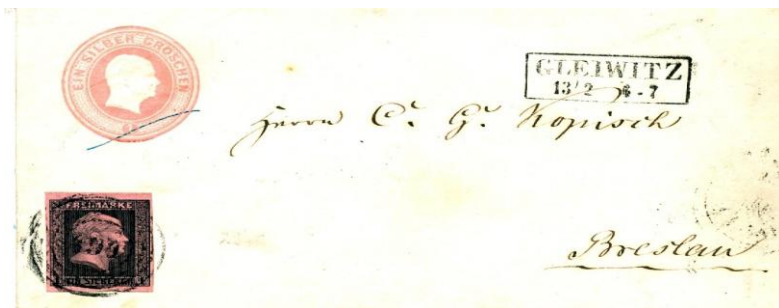 EIN SILBER GROSCHEN
GLEIWITZ
13/2 6-7
Herrn C. G. Kopisch
FREIMARKE
Breslau